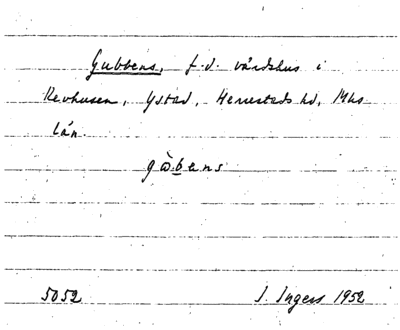 Gubbens, f.d. värdshus i
Revhusen, Ystad, Herrestads hd, Mhs
län.
gå̀bens
5052
I. Ingers 1952